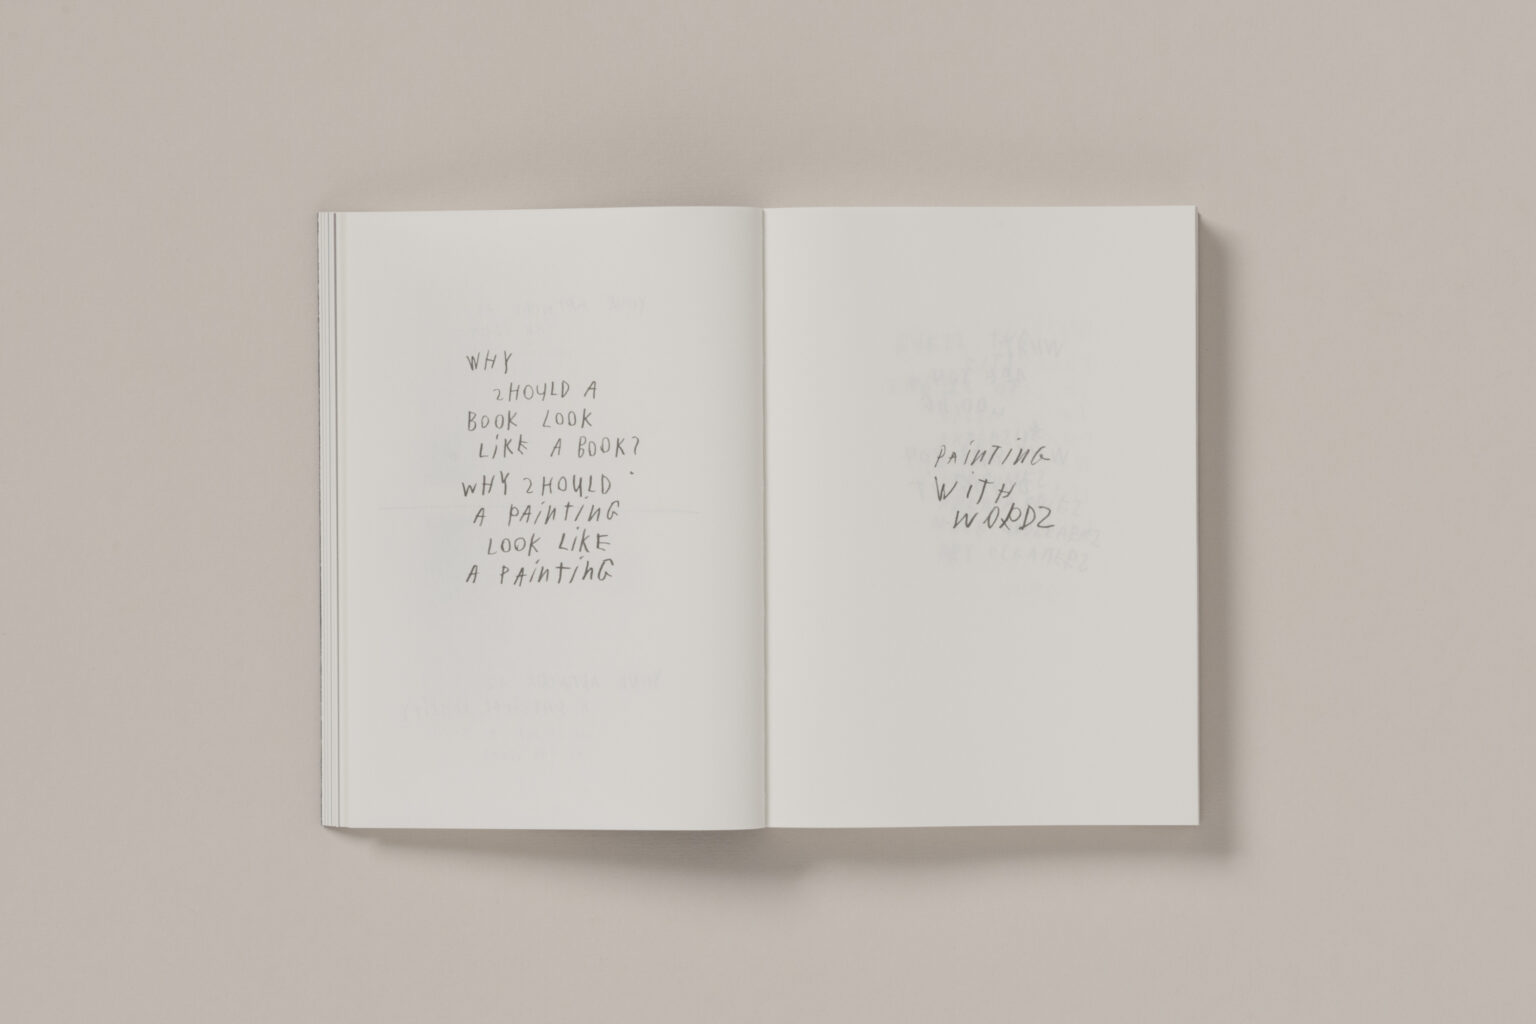 WHY
2HOULD A
BOOK LOOK
LiKE A BOOK?
WHY 2HOULD
A PAinTinG
LOOK LiKE
A PAinTinG
PAinTinG
WiTH
WORD2